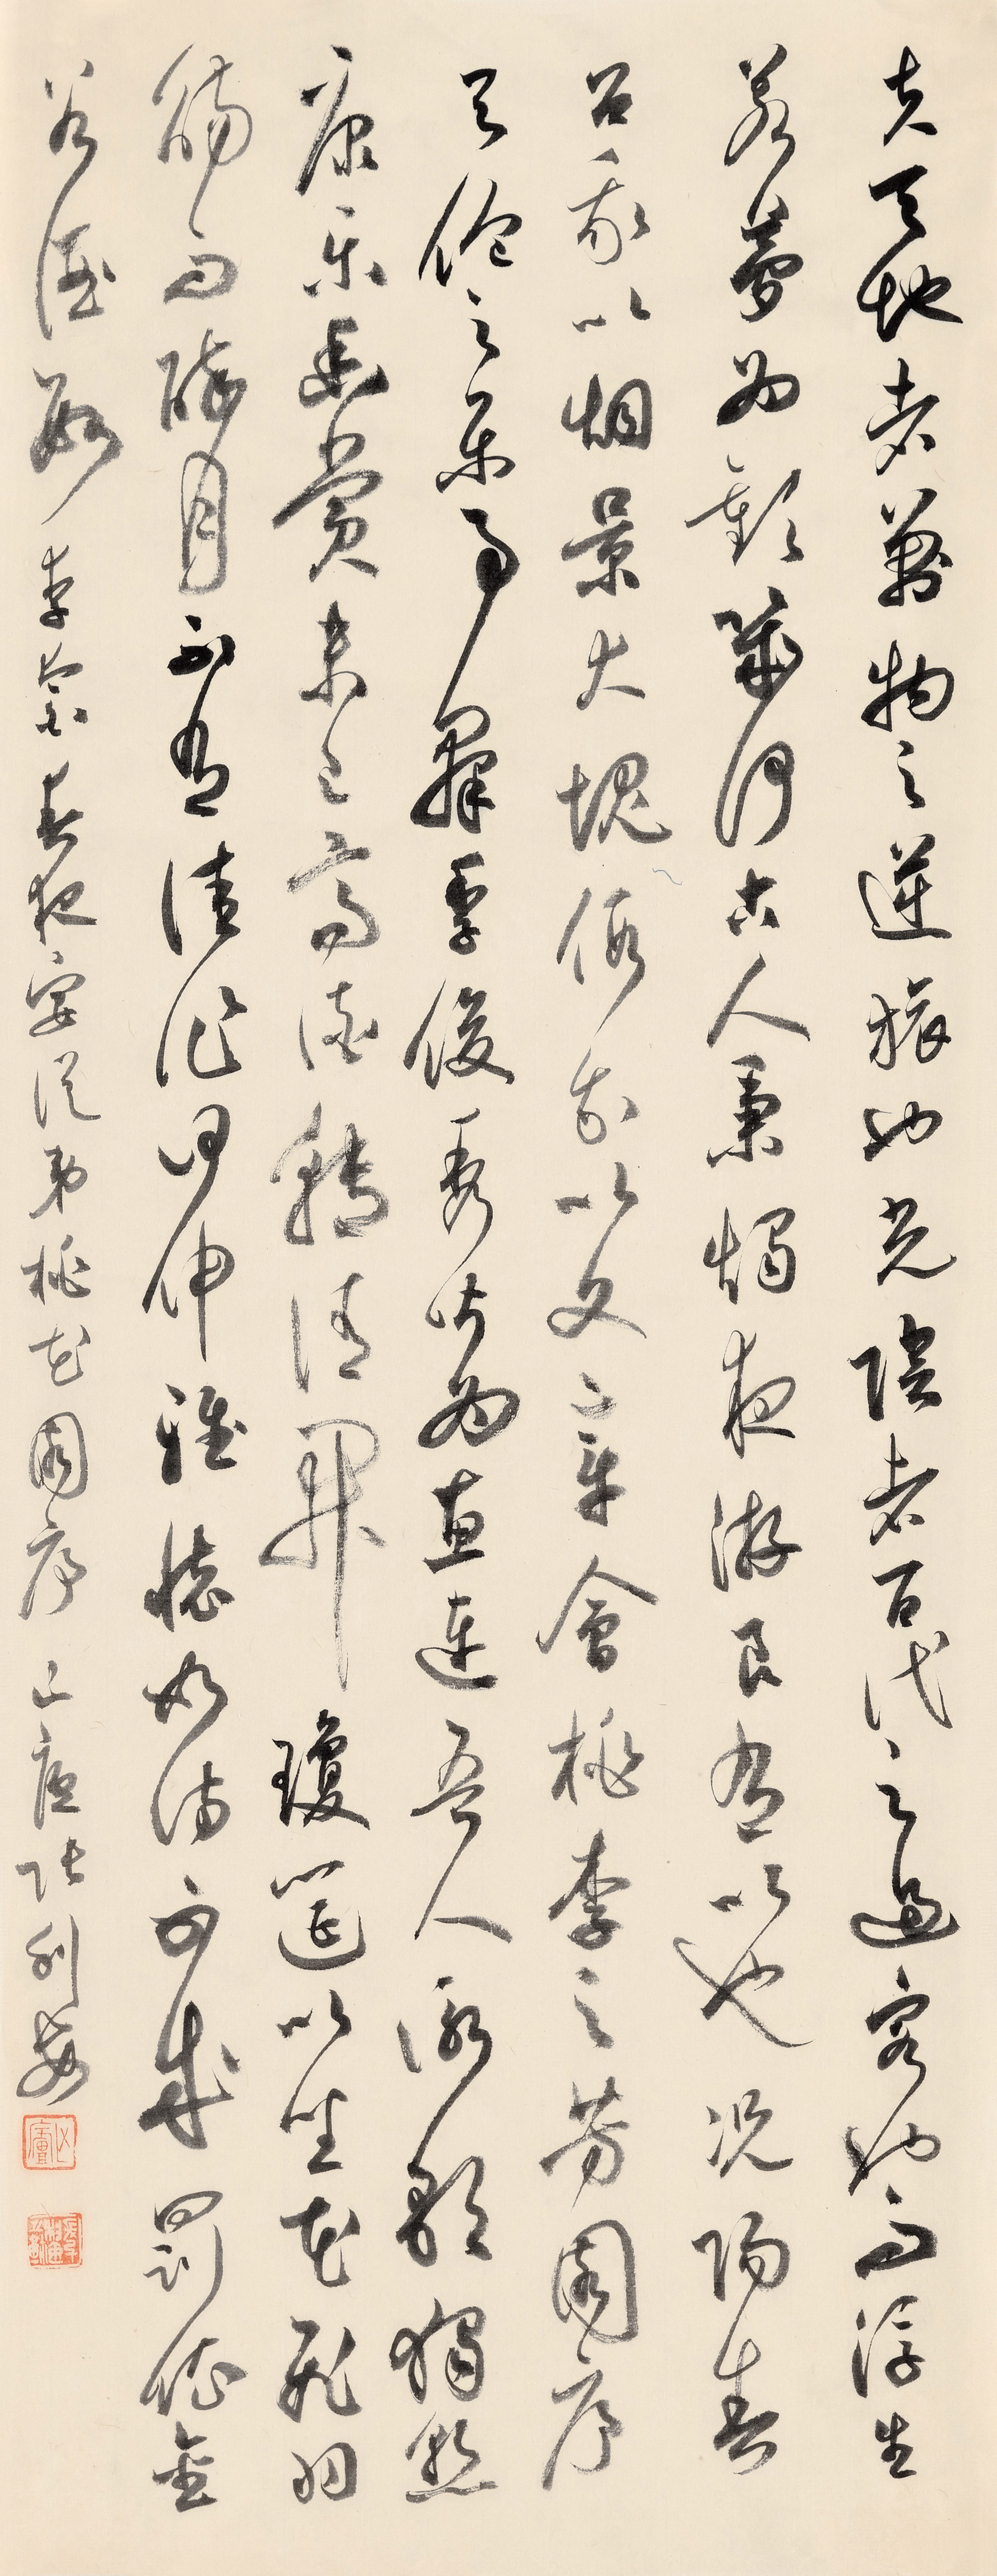 夫天地者萬物之逆旅也光陰者百代之過客也而浮生
若夢為歡幾何古人秉燭夜游良有以也況陽春
召我以烟景大塊假我以文章會桃李之芳園序
天倫之樂事羣季俊秀皆為惠連吾人詠歌獨慙
康樂幽賞未已高談轉清開瓊筵以坐花飛羽
觴而醉月不有佳作何伸雅懷如詩不成罰依金
谷酒數 李白春夜宴從弟桃花園序